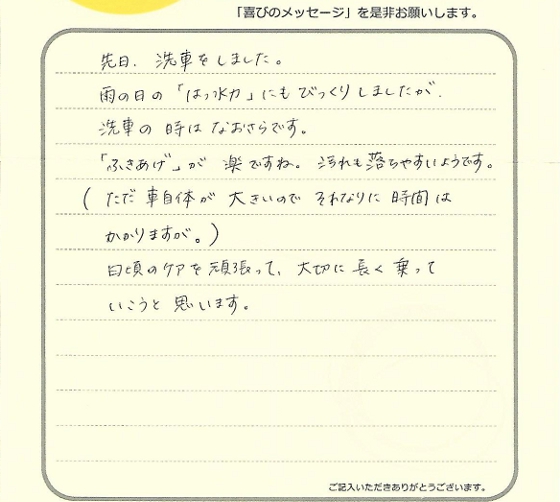 「喜びのメッセージ」を是非お願いします。
先日、洗車をしました。
雨の日の「はっ水力」にもびっくりしましたが、
洗車の時はなおさらです。
「ふきあげ」が楽ですね。汚れも落ちやすいようです。
(ただ車自体が大きいのでそれなりに時間は
かかりますが。)
日頃のケアを頑張って、大切に長く乗って
いこうと思います。
ご記入いただきありがとうございます。